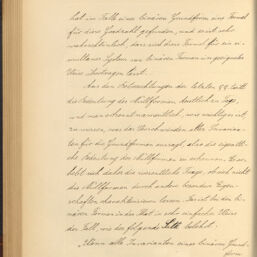 hat im Falle einer binären Grundform eine Formel
für diese Gradzahl gefunden, und es ist sehr
wahrscheinlich, dass sich diese Formel für ein si-
multanes System von binären Formen in geeigneter
Weise übertragen lässt.
Aus den Betrachtungen der letzten §§ tritt
die Bedeutung der Nullformen deutlich zu Tage,
und man erkennt namentlich, wie wichtig es ist,
zu wissen, was das Verschwinden aller Invarian-
ten für die Grundformen aussagt, also die eigent-
liche Bedeutung der Nullformen zu erkennen. Es er-
hebt sich daher die wesentliche Frage, ob sich nicht
die Nullformen durch andere besondere Eigen-
schaften charakterisieren lassen. Das ist bei den bi-
nären Formen in der That in sehr einfacher Weise
der Fall, wie der folgende Satz belehrt:
"Wenn alle Invarianten einer binären Grund-
form